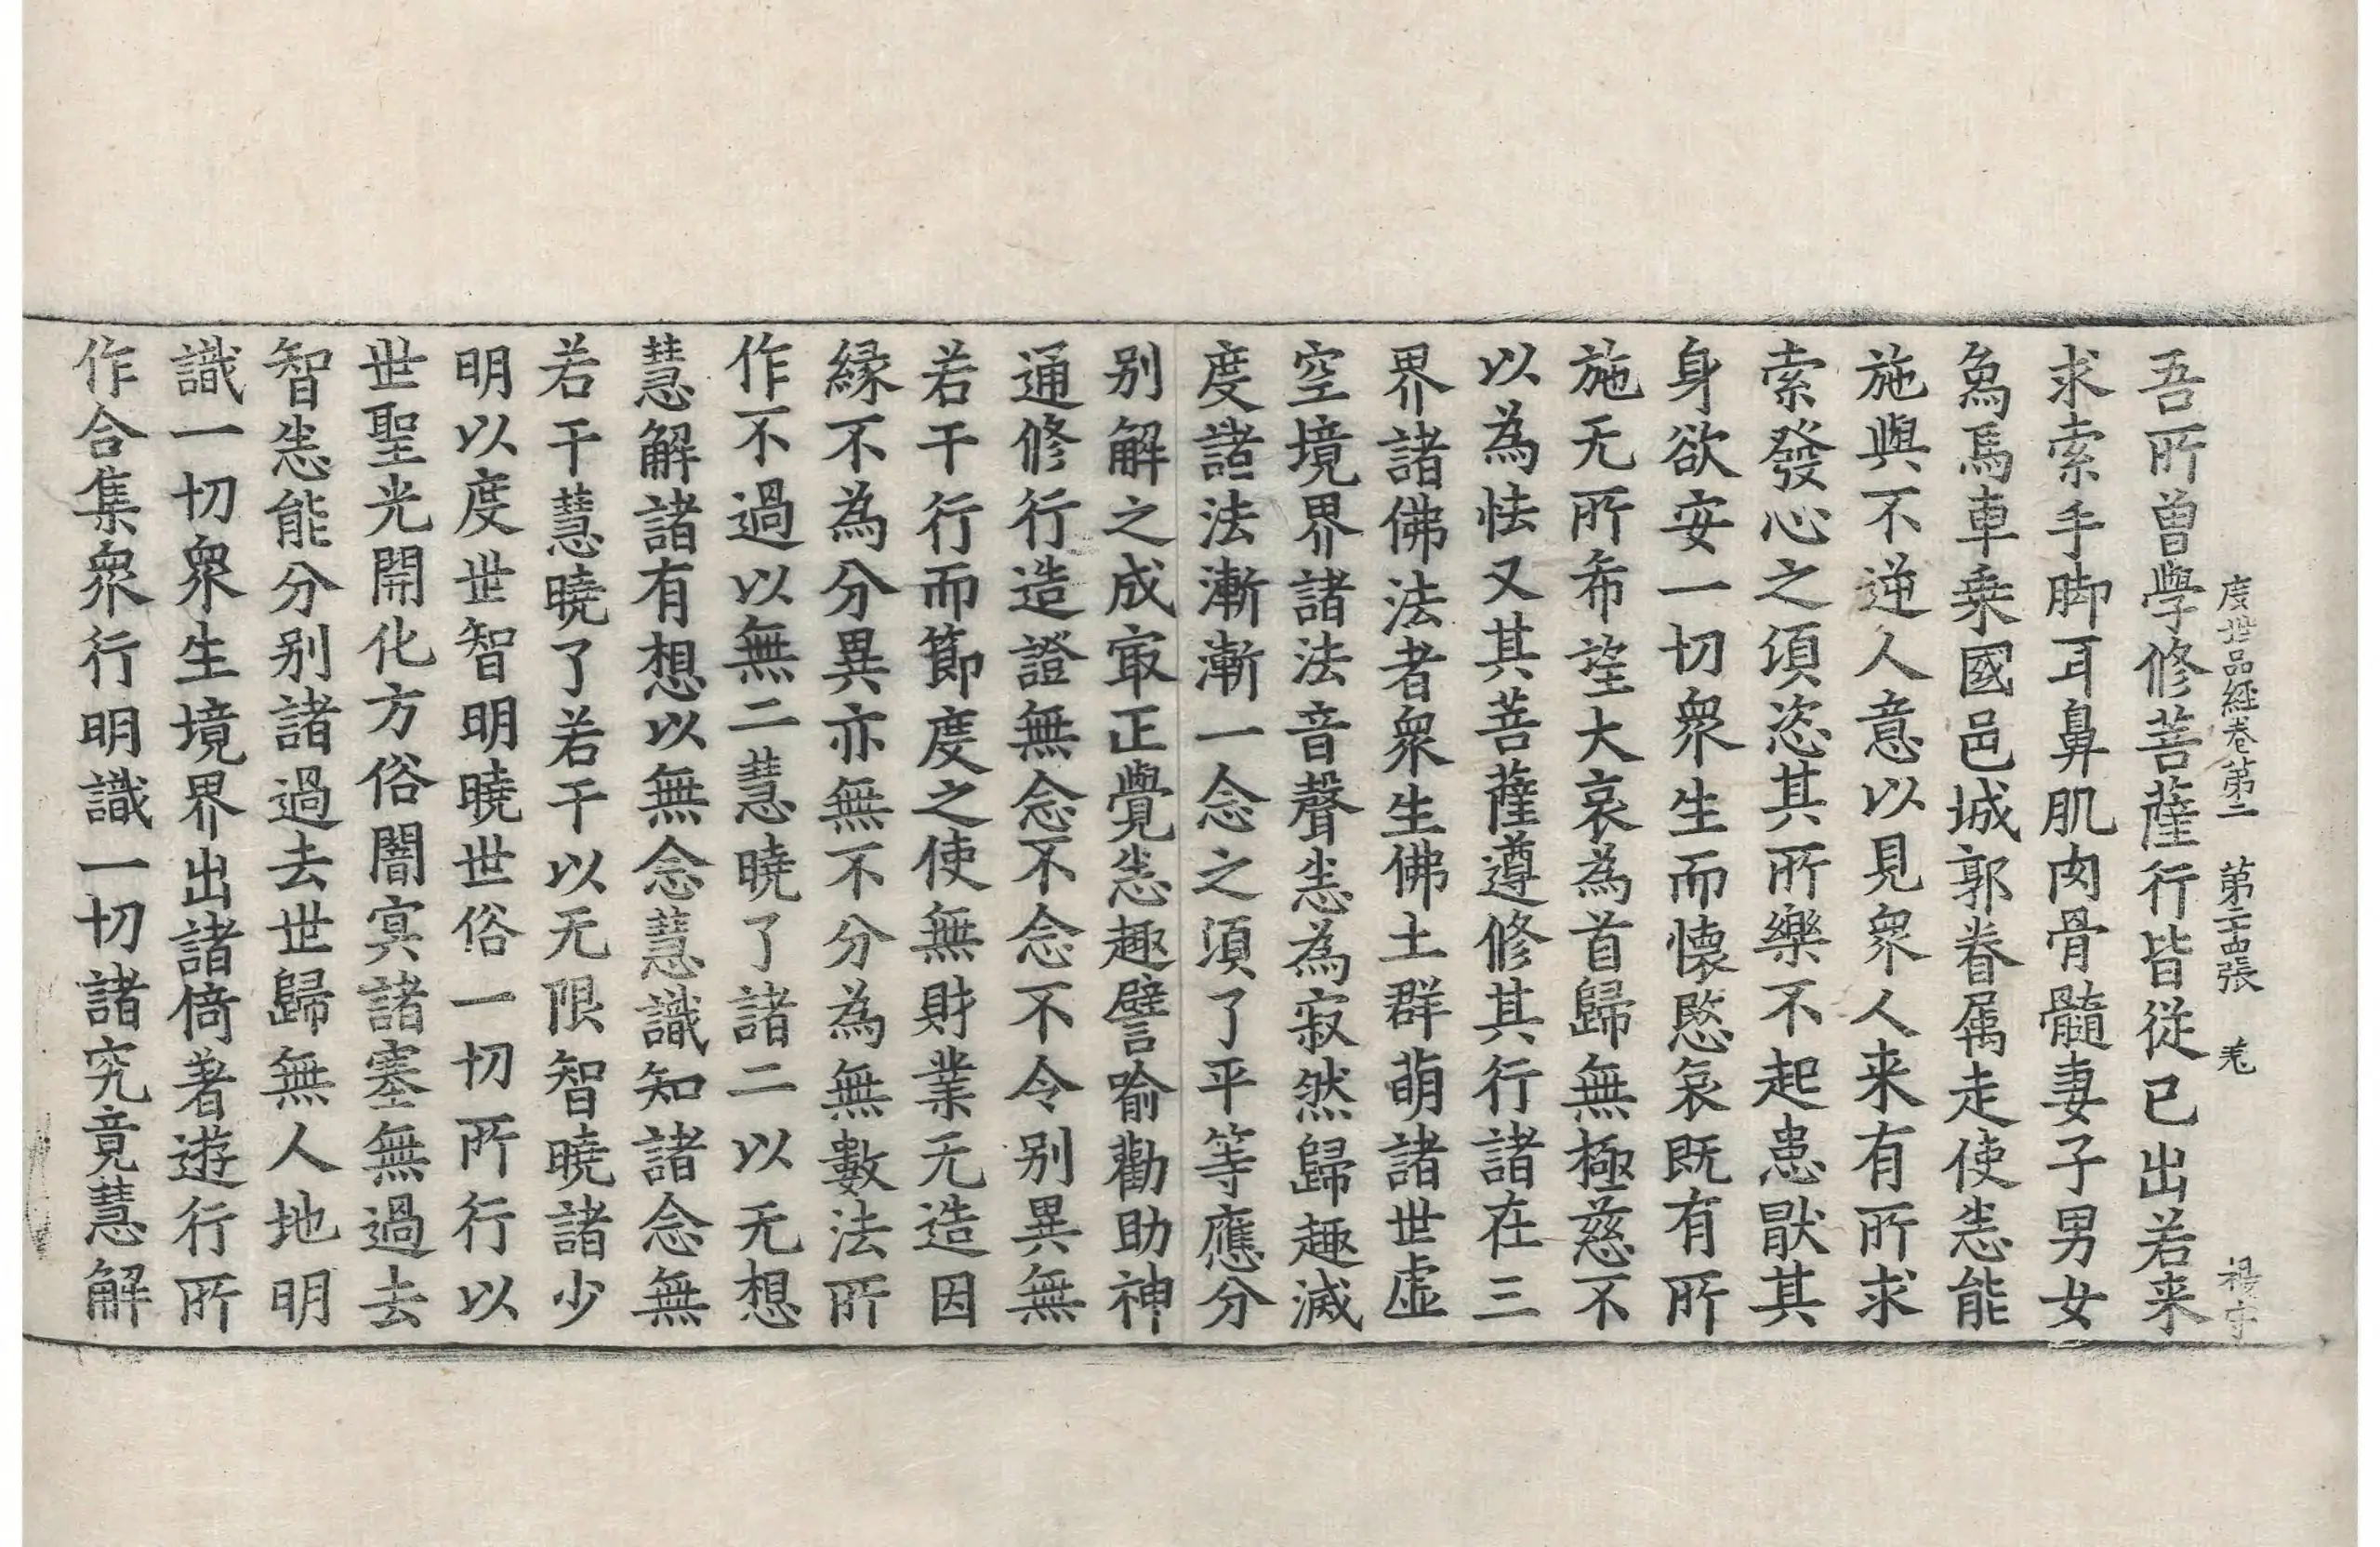 度世品經卷第二 第二十四張 羗 楊宇
吾所曽學修菩薩行皆從已出若来
求索手脚耳鼻肌肉骨髓妻子男女
為馬車乗國邑城郭眷属走使恚能
施與不逆人意以見衆人来有所求
索發心之湏恣其所樂不起患猒其
身欲安一切衆生而懐愍哀既有所
施无所希望大哀為首歸無極慈不
以為怯又其菩薩遵修其行諸在三
界諸佛法者衆生佛土群萌諸世虚
空境界諸法音聲恚為寂然歸趣滅
度諸法漸漸一念之湏了平等應分
别解之成㝡正覺恚趣譬喻勸助神
通修行造證無念不念不令别異無
若干行而節度之使無財業无造因
縁不為分異亦無不分為無數法所
作不過以無二慧曉了諸二以无想
慧解諸有想以無念慧識知諸念無
若干慧曉了若干以无限智曉諸少
明以度世智明曉世俗一切所行以
世聖光開化方俗闇㝠諸塞無過去
智恚能分别諸過去世歸無人地明
識一切衆生境界出諸倚著遊行所
作合集衆行明識一切諸究竟慧解